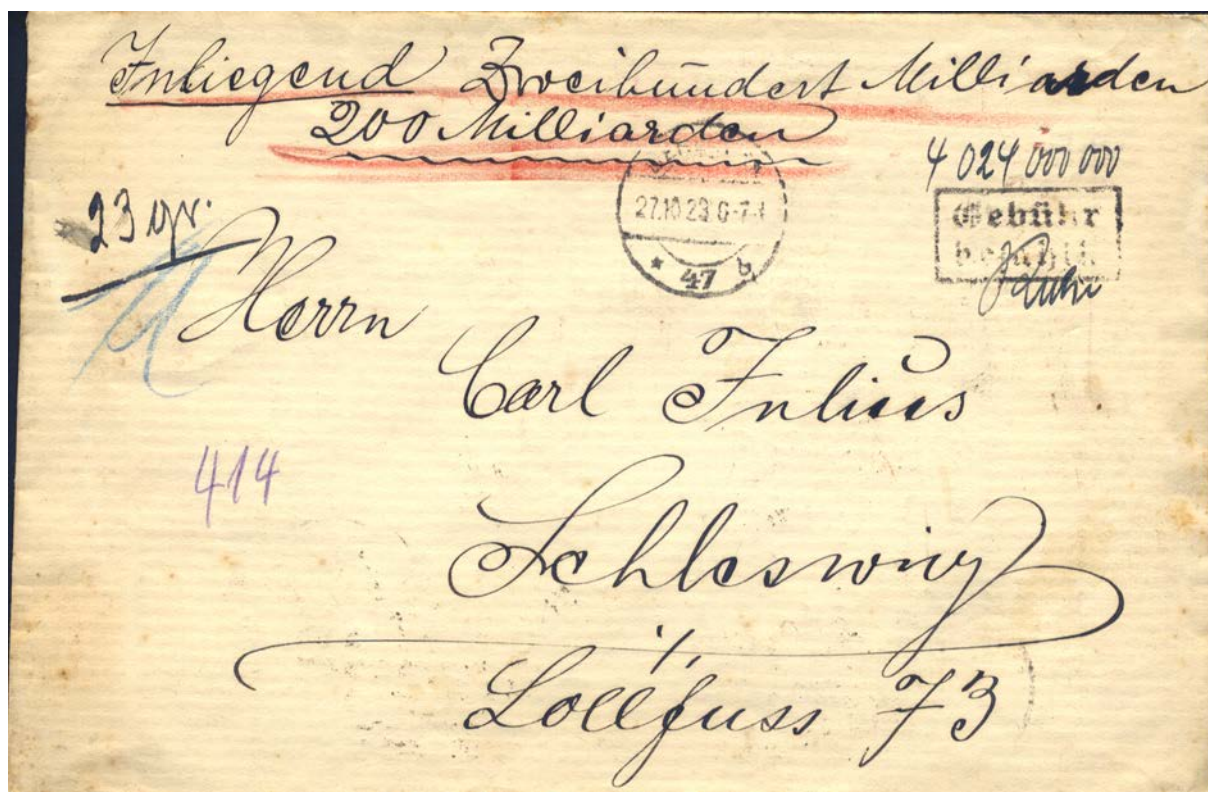 Inliegend Zweihundert Milliarden
200 Milliarden
4 024 000 000
27.10.23 6-7
* 47 b
Gebühr
bezahlt
23 gr.
Herrn
Carl Julius
414
Schleswig
Lollfuss 73